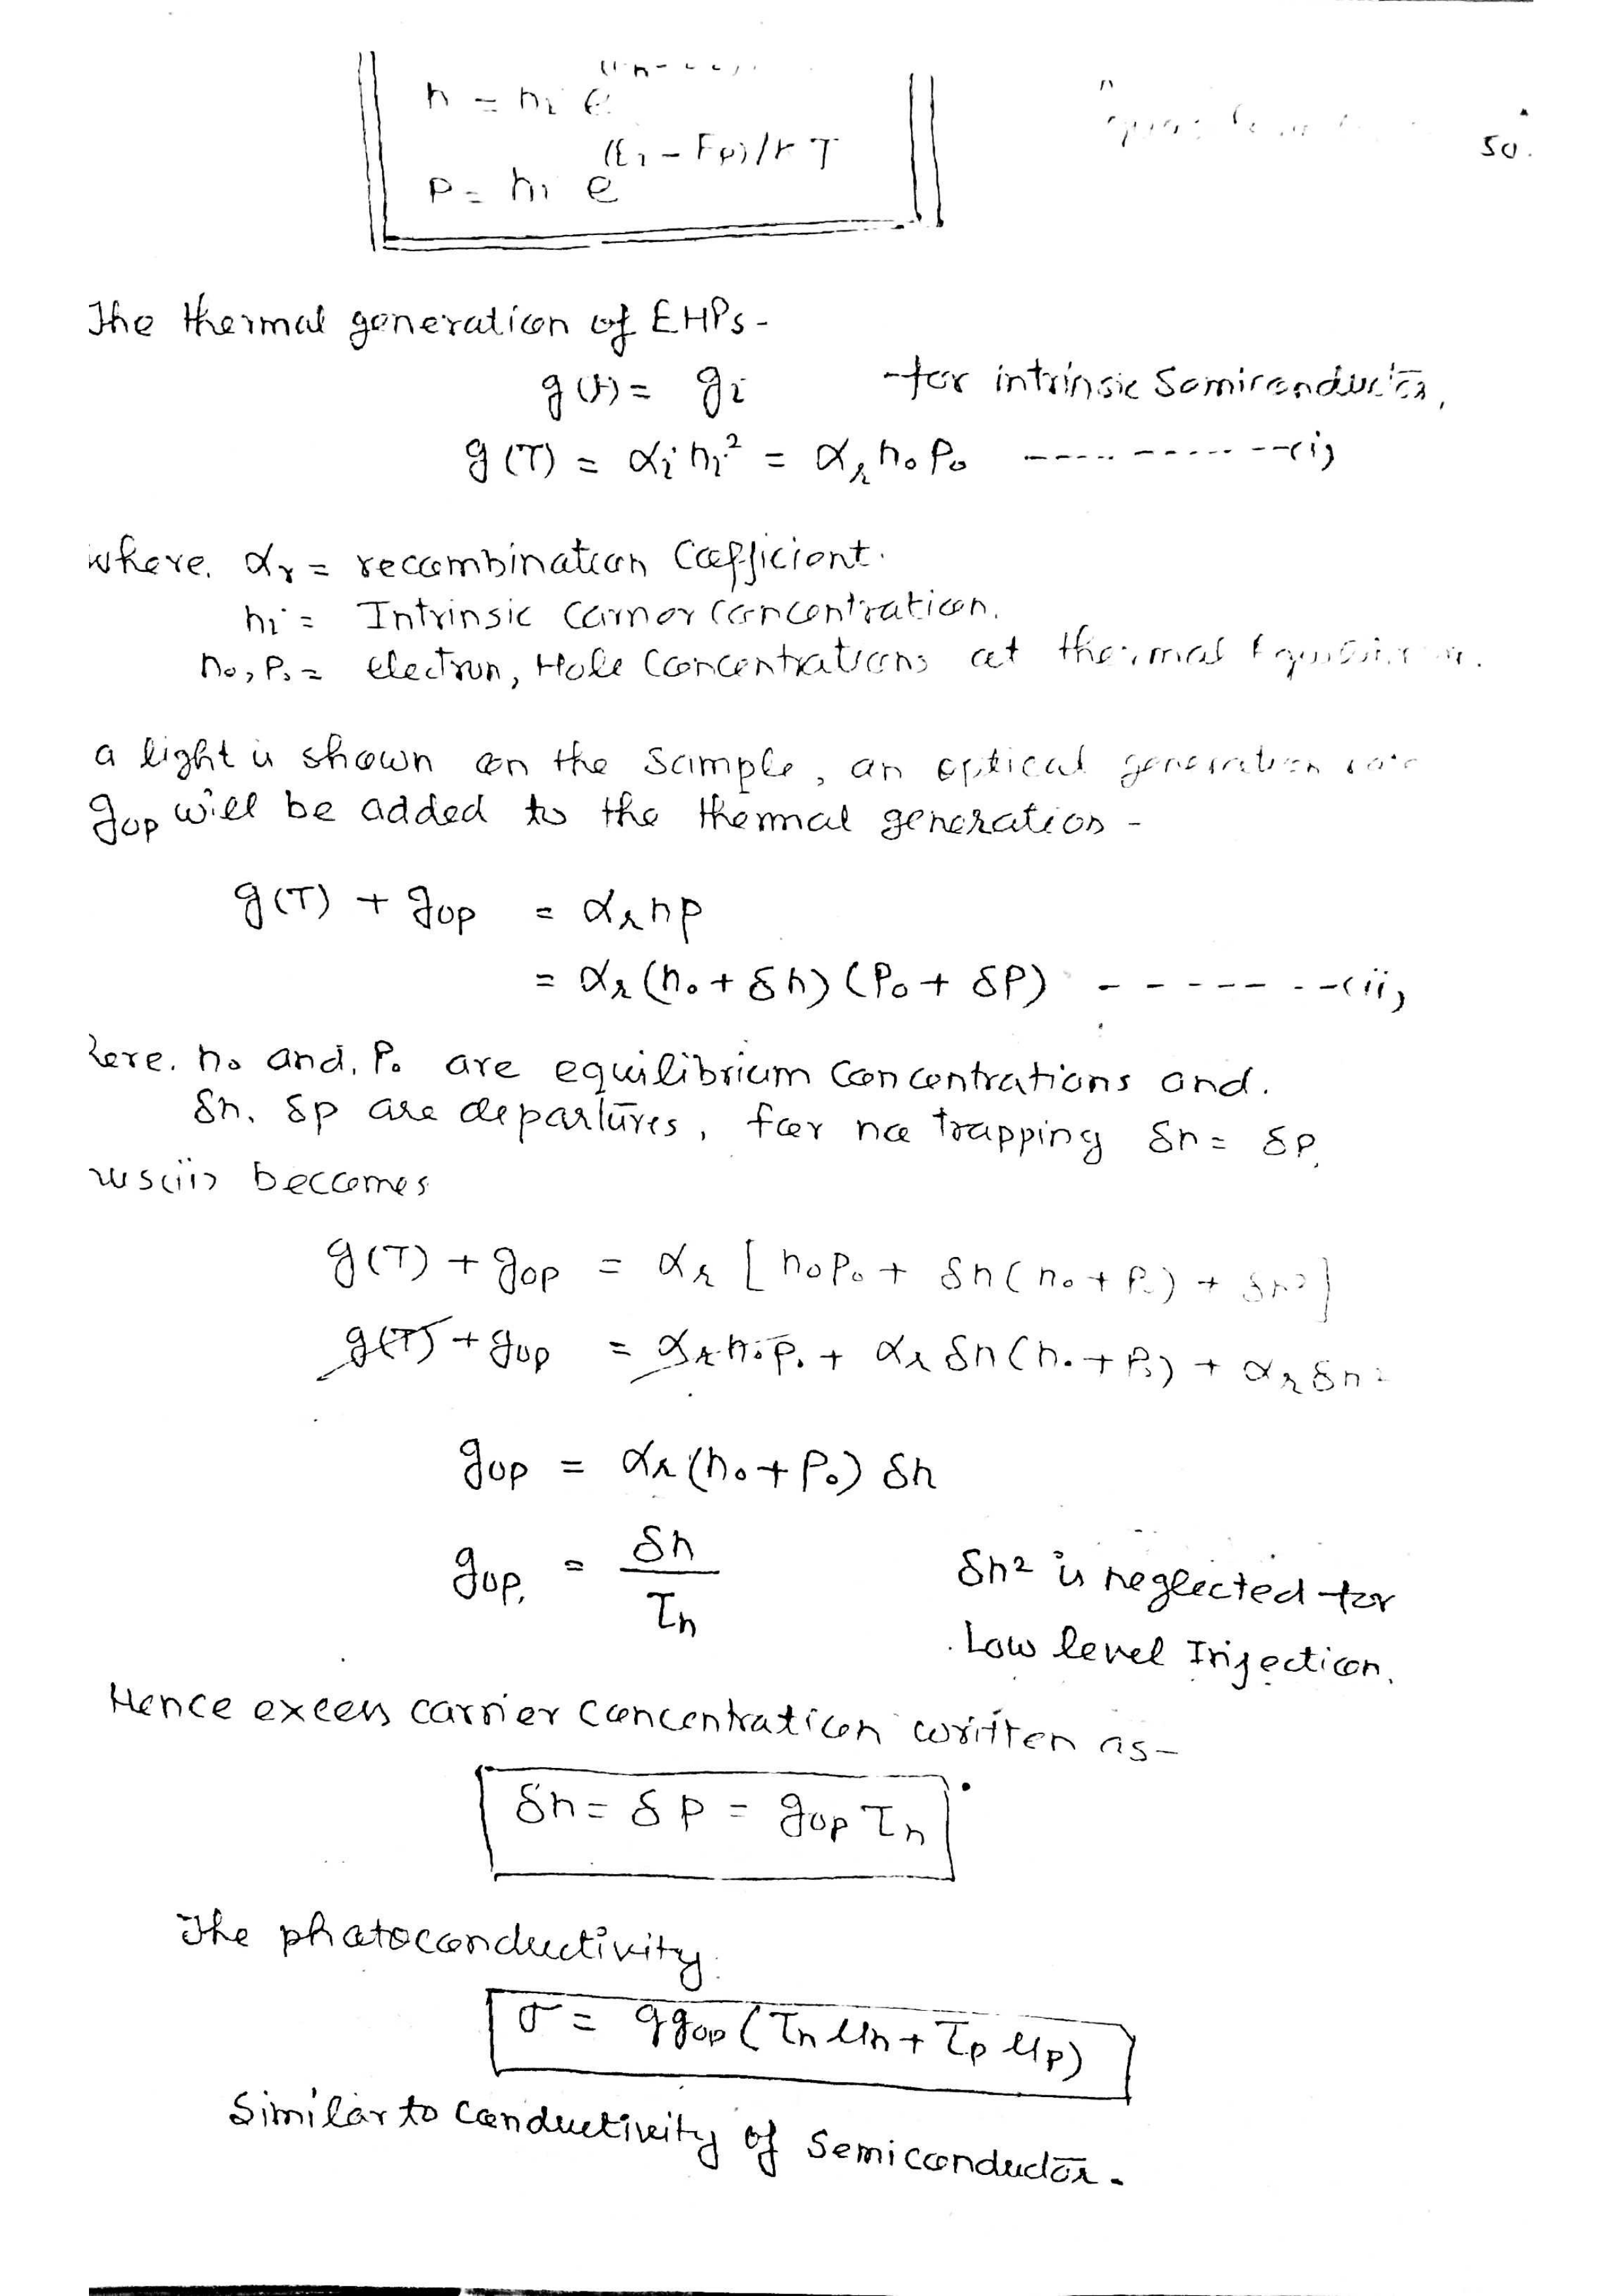 n = ni e
50.
((Ei - Fp)/kT
p = ni e
The thermal generation of EHPs -
g(t) = gi - for intrinsic Semiconductor,
g(T) = αi ni² = αr no Po ---------- (i)
where, αr = recombination Coefficient.
ni = Intrinsic Carrier Concentration.
no, Po = electron, Hole Concentrations at thermal Equilibrium.
a light is shown on the Sample, an optical generation rate
gop will be added to the thermal generation -
g(T) + gop = αr np
= αr (no + δn) (Po + δP) -------- (ii)
here, no and, Po are equilibrium Concentrations and.
δn, δp are departures, for no trapping δn = δp,
(ii) becomes
g(T) + gop = αr [noPo + δn(no + Po) + δn²]
g(T) + gop = αr no Po + αr δn(no + Po) + αr δn²
gop = αr (no + Po) δn
gop = δn / τn
δn² is neglected for
Low level Injection.
Hence excess carrier concentration written as -
δn = δp = gop τn
The photoconductivity
σ = q gop (τn μn + τp μp)
Similar to conductivity of Semiconductor.